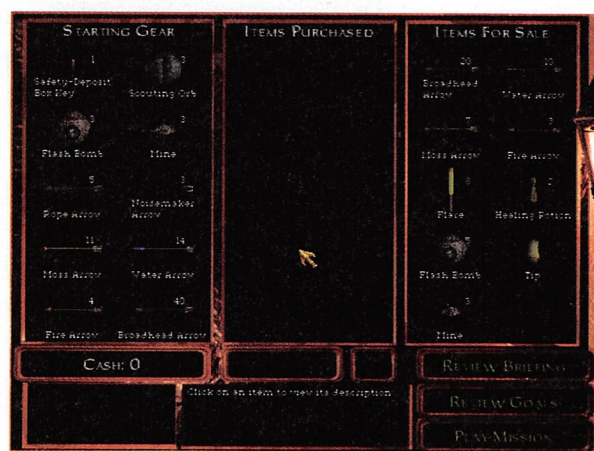 Starting Gear
1
3
Safety-Deposit
Box Key
Scouting Orb
3
3
Flash Bomb
Mine
5
3
Rope Arrow
Noisemaker
Arrow
11
14
Moss Arrow
Water Arrow
4
40
Fire Arrow
Broadhead Arrow
Cash: 0
Items Purchased
Click on an item to view its description
Items For Sale
20
10
Broadhead
Arrow
Water Arrow
7
Moss Arrow
Fire Arrow
Flare
Healing Potion
5
Flash Bomb
Tip
3
Mine
Review Briefing
Review Goals
Play Mission